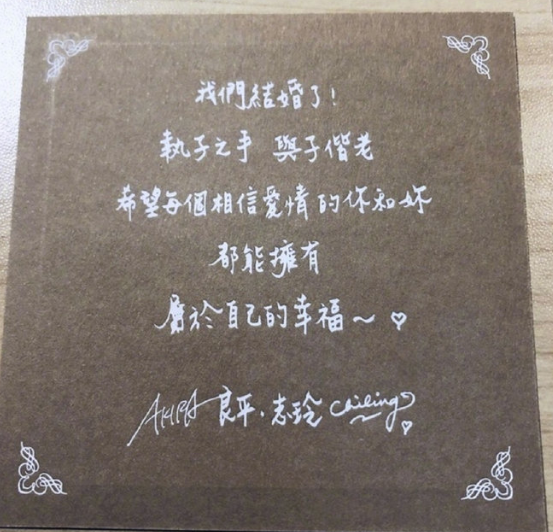 我們結婚了!
執子之手 與子偕老
希望每個相信愛情的你和妳
都能擁有
屬於自己的幸福~♡
AKIRA 良平.志玲 Chiling♡